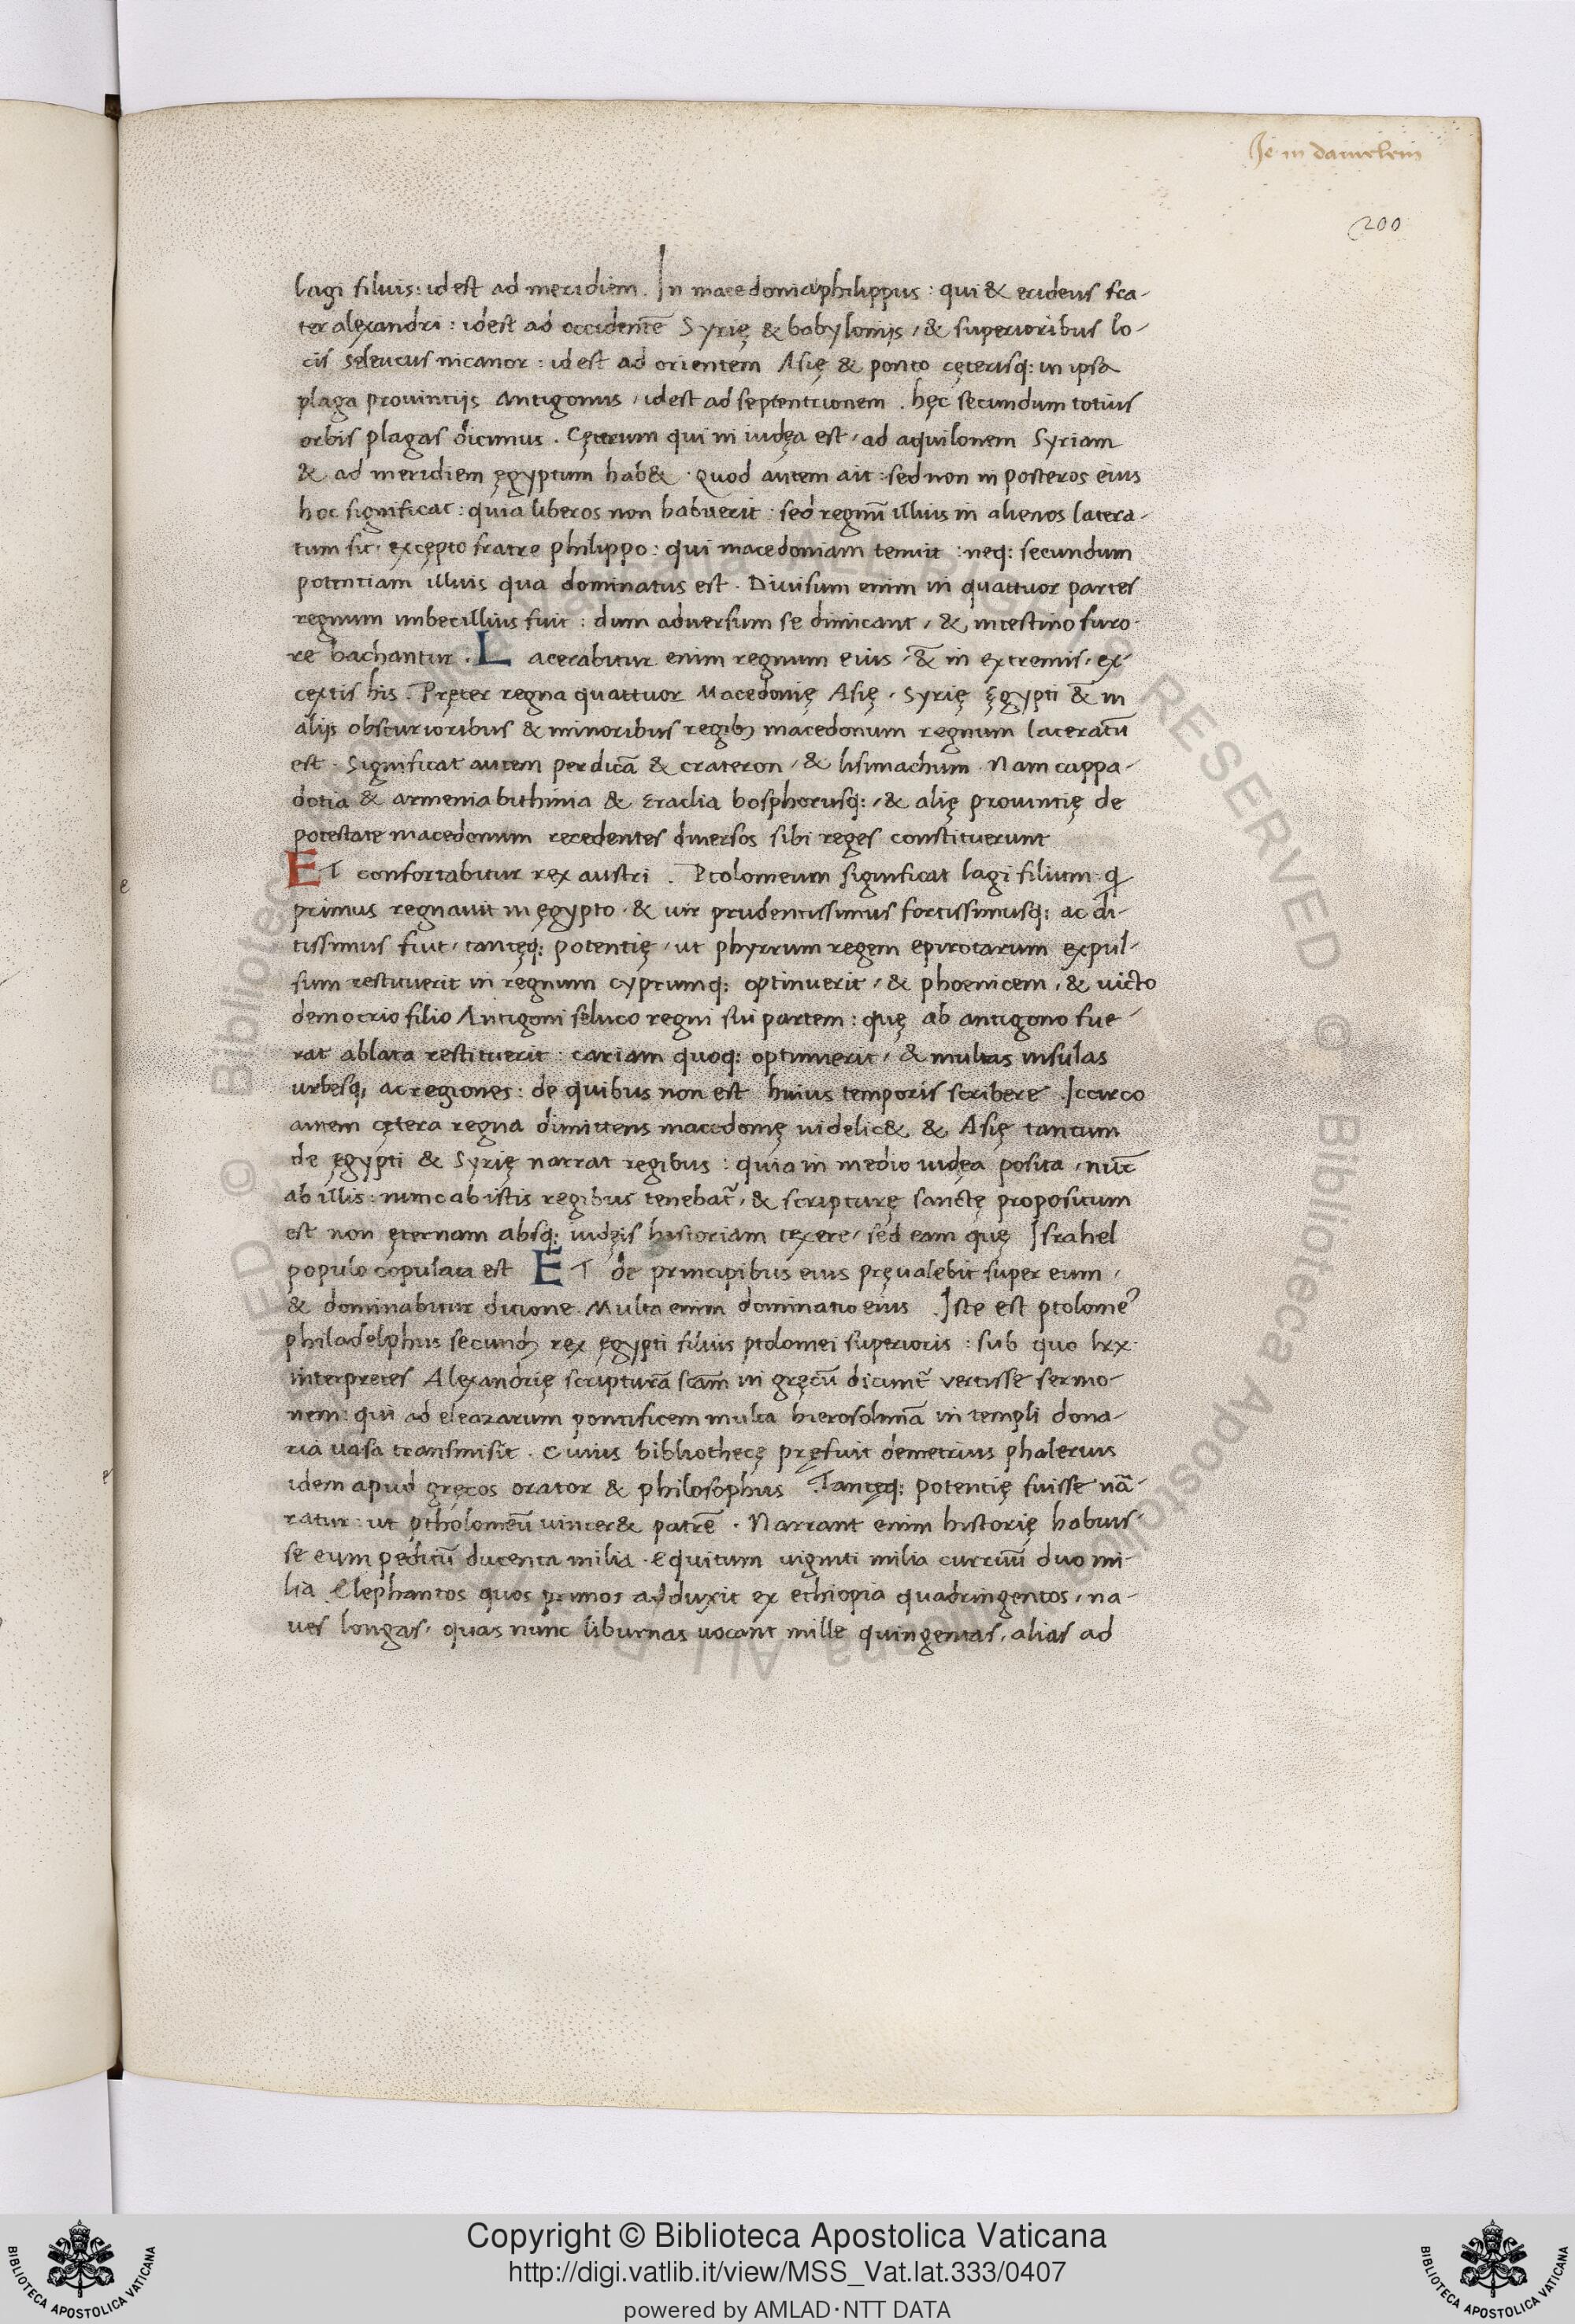 Je in danielem
200
lagi filius: idest ad meridiem. In macedonia philippus: qui & erideus fra-
ter alexandri: idest ad occidentē Syrię & babylonijs, & superioribus lo-
cis seleucus nicanor: idest ad orientem Asię & ponto cęterisq: in ipsa
plaga prouintijs Antigonus, idest ad septentrionem. hęc secundum totius
orbis plagas dicimus. Cęterum qui in iudęa est, ad aquilonem Syriam
& ad meridiem ęgyptum hab&. Quod autem ait: sed non in posteros eius
hoc significat: quia liberos non habuerit: sed regnū illius in alienos lacera-
tum sit, excępto fratre philippo: qui macedoniam tenuit: neq: secundum
potentiam illius qua dominatus est. Diuisum enim in quattuor partes
regnum imbecillius fuit: dum aduersum se dimicant, & intestino furo-
re bachantur. Lacerabitur enim regnum eius, & in extremis, ex-
ceptis his. Pręter regna quattuor Macedonię Asię, Syrię ęgypti & in
alijs obscurioribus & minoribus regibꝫ macedonum regnum laceratū
est. Significat autem perdicā & crateron, & lisimachum. Nam cappa-
dotia & armenia bithinia & eraclia bosphorusq:, & alię prouintię de
potestate macedonum recedentes diuersos sibi reges constituerunt
ET confortabitur rex austri. Ptolomeum significat lagi filium. q̇
primus regnauit in ęgypto, & uir prudentissimus fortissimusq: ac di-
tissimus fuit, tantęq: potentię, ut phyrrum regem epirotarum expul-
sum restituerit in regnum cyprumq: optinuerit, & phoenicem, & uicto
democrio filio Antigoni seluco regni sui partem: quę ab antigono fue-
rat ablata restituerit: cariam quoq: optinuerit, & multas insulas
urbesq; ac regiones: de quibus non est huius temporis scribere. Iccirco
autem cętera regna dimittens macedonię uidelic& & Asię tantum
de ęgypti & Syrię narrat regibus: quia in medio iudęa posita, nūc
ab illis: nunc ab istis regibus tenebat̄, & scripturę sanctę propositum
est non ęternam absq: iudęis historiam texere, sed eam quę Israhel
populo copulata est ET de principibus eius pręualebit super eum,
& dominabitur ditione. Multa enim dominatio eius. Iste est ptolome⁹
philadelphus secundꝫ rex ęgypti filius ptolomei superioris: sub quo lxx.
interpretes Alexandrię scripturā scam̄ in gręcū dicunt̄ vertisse sermo-
nem: qui ad eleazarum pontificem multa hierosolimā in templi dona-
ria uasa transmisit. Cuius bibliothecę pręfuit demetrius phalerius
idem apud gręcos orator & philosophus. Tantęq: potentię fuisse nā-
ratur: ut ptholomeū uincer& patrē. Narrant enim historię habuis-
se eum peditū ducenta milia. Equitum uiginti milia curruū duo mi-
lia Elephantos quos primos adduxit ex ethiopia quadringentos, na-
ues longas, quas nunc liburnas uocant mille quingentas, alias ad
Copyright © Biblioteca Apostolica Vaticana
http://digi.vatlib.it/view/MSS_Vat.lat.333/0407
powered by AMLAD·NTT DATA